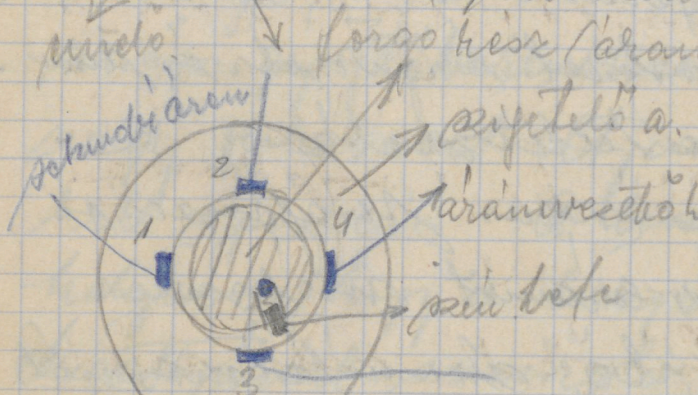 forgó rész (áram
szekundér áram
2
szigetelő a.
1
4
áramvezető
szén kefe
3